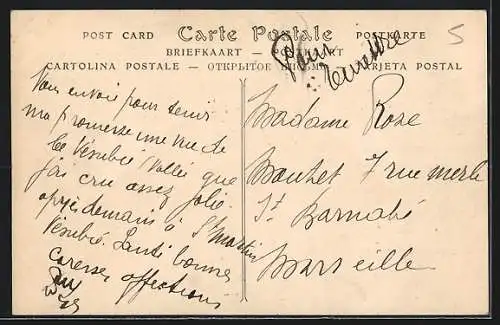 POST CARD Carte Postale POSTKARTE
BRIEFKAART —
CARTOLINA POSTALE — ОТКРЫТОЕ TARJETA POSTAL
5
Vous envoi pour tenir
ma promesse une vue de
la Vésubie Vallée que
j'ai cru assez jolie.
après demain à St Martin
Vésubie. Santé bonne
caresses affections
Madame Rose
Bouhet 7 rue merle
St. Barnabé
Marseille